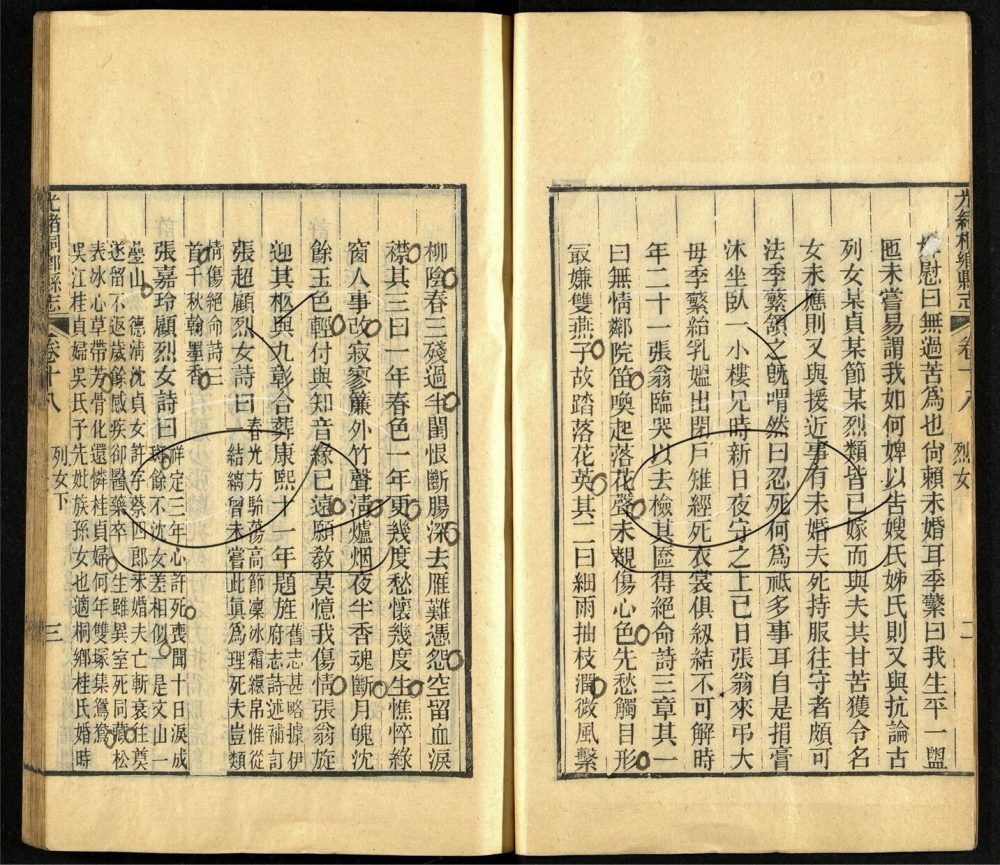 光緒桐鄉縣志 卷十八 列女 二
慰曰無過苦爲也尙賴未婚耳季蘩曰我生平一盥
匜未嘗易謂我如何婢以告嫂氏姊氏則又與抗論古
列女某貞某節某烈類皆已嫁而與夫共甘苦獲令名
女未應則又與援近事有未婚夫死持服往守者頗可
法季蘩頷之旣喟然曰忍死何爲祗多事耳自是捐膏
沐坐臥一小樓兄時新日夜守之上巳日張翁來弔大
母季蘩紿乳媼出閉戶雉經死衣裳俱紉結不可解時
年二十一張翁臨哭以去檢其區得絕命詩三章其一
曰無情鄰院笛喚起落花聲未覩傷心色先愁觸目形
最嫌雙燕子故踏落花英其二曰細雨抽枝潤微風繫
柳陰春三殘過半閨恨斷腸深去雁難憑怨空留血淚
襟其三曰一年春色一年更幾度愁懷幾度生憔悴綠
窗人事改寂寥簾外竹聲淸爐烟夜半香魂斷月魄沈
餘玉色輕付與知音緣已遠願敎莫憶我傷情張翁旋
迎其柩與九彰合葬康熙十一年題旌舊志甚略據伊
府志詩述補訂
張超顧烈女詩曰一結縭曾未嘗此眞爲理死夫豈類
春光方駘蕩高節凜冰霜繯帛惟從
情傷絕命詩三
首千秋翰墨香
張嘉玲顧烈女詩曰祥定三年心許死喪聞十日淚成
斑餘不沈女差相似一是文山一
疊山 德淸沈貞女許字蔡四郎未婚夫亡斬衰往奠
遂留不返歲餘感疾卻醫藥卒 生雖異室死同藏松
表冰心草帶芳骨化還憐桂貞婦何年雙塚集鴛鴦
吳江桂貞婦吳氏予先妣族孫女也適桐鄉桂氏婚時
光緒桐鄉縣志 卷十八 列女下 三